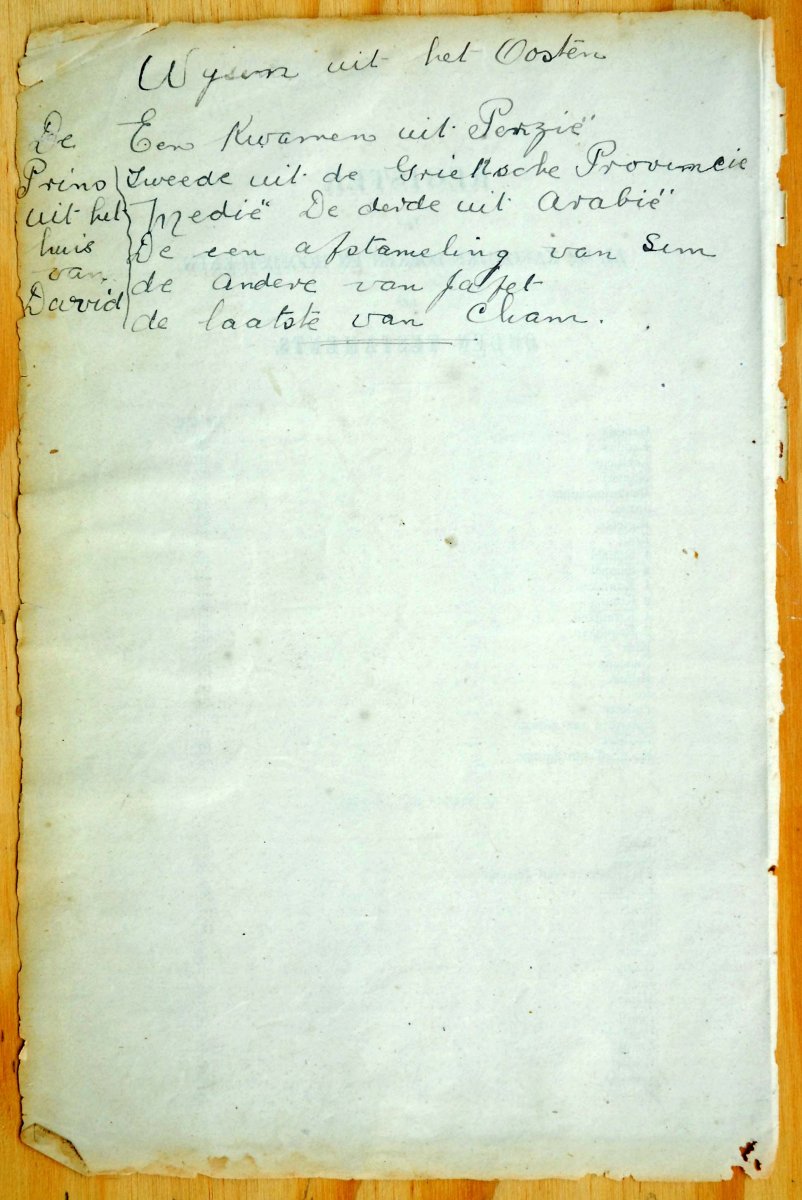 Wysen uit het Oosten
De
Prins
uit het
huis
van
David
Een Kwamen uit Perzië
Tweede uit de Grieksche Provincie
Medië De derde uit Arabië
De een afstameling van Sem
de andere van Jafet
de laatste van Cham.